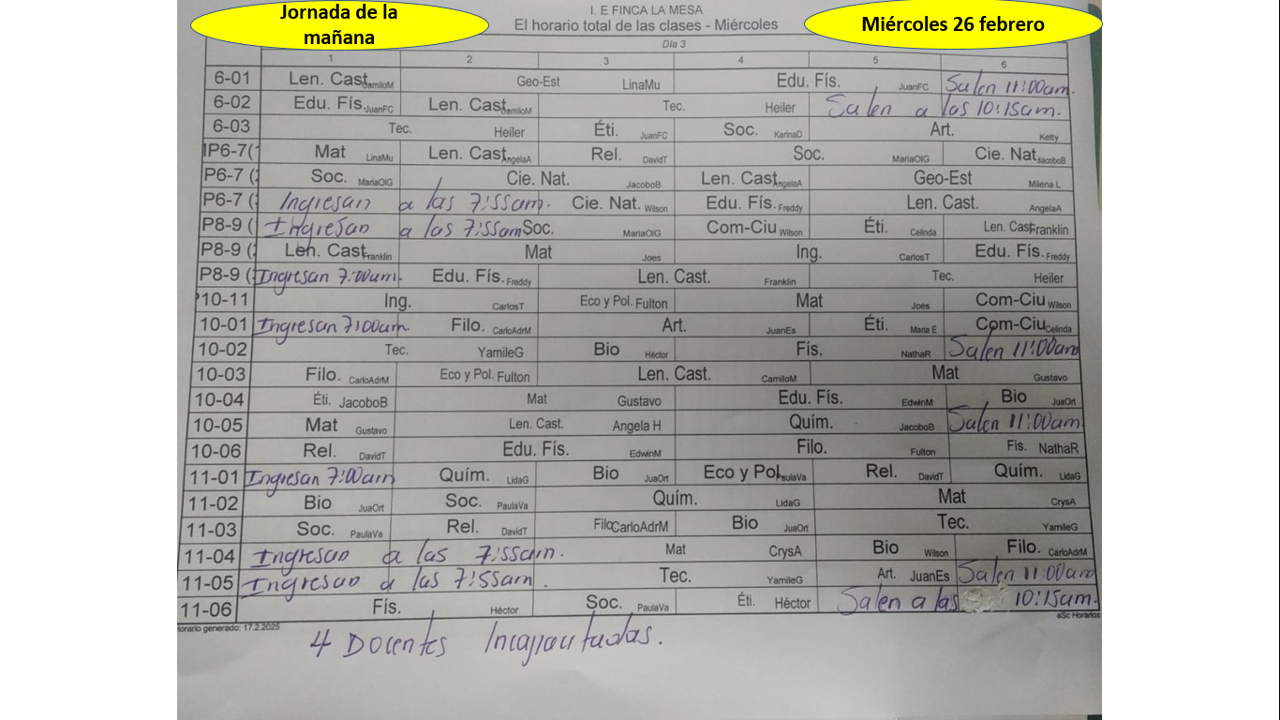 Jornada de la
mañana
Miércoles 26 febrero
I. E FINCA LA MESA
El horario total de las clases - Miércoles
Día 3
1 2 3 4 5 6
6-01 Len. Cast. CamiloM Geo-Est LinaMu Edu. Fís. JuanFC Salen 11:00am.
6-02 Edu. Fís. JuanFC Len. Cast. CamiloM Tec. Heiler Salen a las 10:15am.
6-03 Tec. Heiler Éti. JuanFC Soc. KarinaD Art. Ketty
IP6-7(1 Mat LinaMu Len. Cast. AngelaA Rel. DavidT Soc. MariaOlG Cie. Nat. JacoboB
P6-7 (2 Soc. MariaOlG Cie. Nat. JacoboB Len. Cast. AngelaA Geo-Est Milena L
P6-7 ( Ingresan a las 7:55am. Cie. Nat. Wilson Edu. Fís. Freddy Len. Cast. AngelaA
P8-9 ( Ingresan a las 7:55am Soc. MariaOlG Com-Ciu Wilson Éti. Celinda Len. Cast. Franklin
P8-9 ( Len. Cast. Franklin Mat Joes Ing. CarlosT Edu. Fís. Freddy
P8-9 ( Ingresan 7:00am. Edu. Fís. Freddy Len. Cast. Franklin Tec. Heiler
P10-11 Ing. CarlosT Eco y Pol. Fulton Mat Joes Com-Ciu Wilson
10-01 Ingresan 7:00am Filo. CarloAdrM Art. JuanEs Éti. Maria E Com-Ciu Celinda
10-02 Tec. YamileG Bio Héctor Fís. NathaR Salen 11:00am
10-03 Filo. CarloAdrM Eco y Pol. Fulton Len. Cast. CamiloM Mat Gustavo
10-04 Éti. JacoboB Mat Gustavo Edu. Fís. EdwinM Bio JuaOrt
10-05 Mat Gustavo Len. Cast. Angela H Quím. JacoboB Salen 11:00am
10-06 Rel. DavidT Edu. Fís. EdwinM Filo. Fulton Fís. NathaR
11-01 Ingresan 7:00am Quím. LidaG Bio JuaOrt Eco y Pol. PaulaVa Rel. DavidT Quím. LidaG
11-02 Bio JuaOrt Soc. PaulaVa Quím. LidaG Mat CrysA
11-03 Soc. PaulaVa Rel. DavidT Filo CarloAdrM Bio JuaOrt Tec. YamileG
11-04 Ingresan a las 7:55am. Mat CrysA Bio Wilson Filo. CarloAdrM
11-05 Ingresan a las 7:55am. Tec. YamileG Art. JuanEs Salen 11:00am
11-06 Fís. Héctor Soc. PaulaVa Éti. Héctor Salen a las 10:15am.
orario generado: 17.2.2025 aSc Horarios
4 Docentes Incapacitadas.